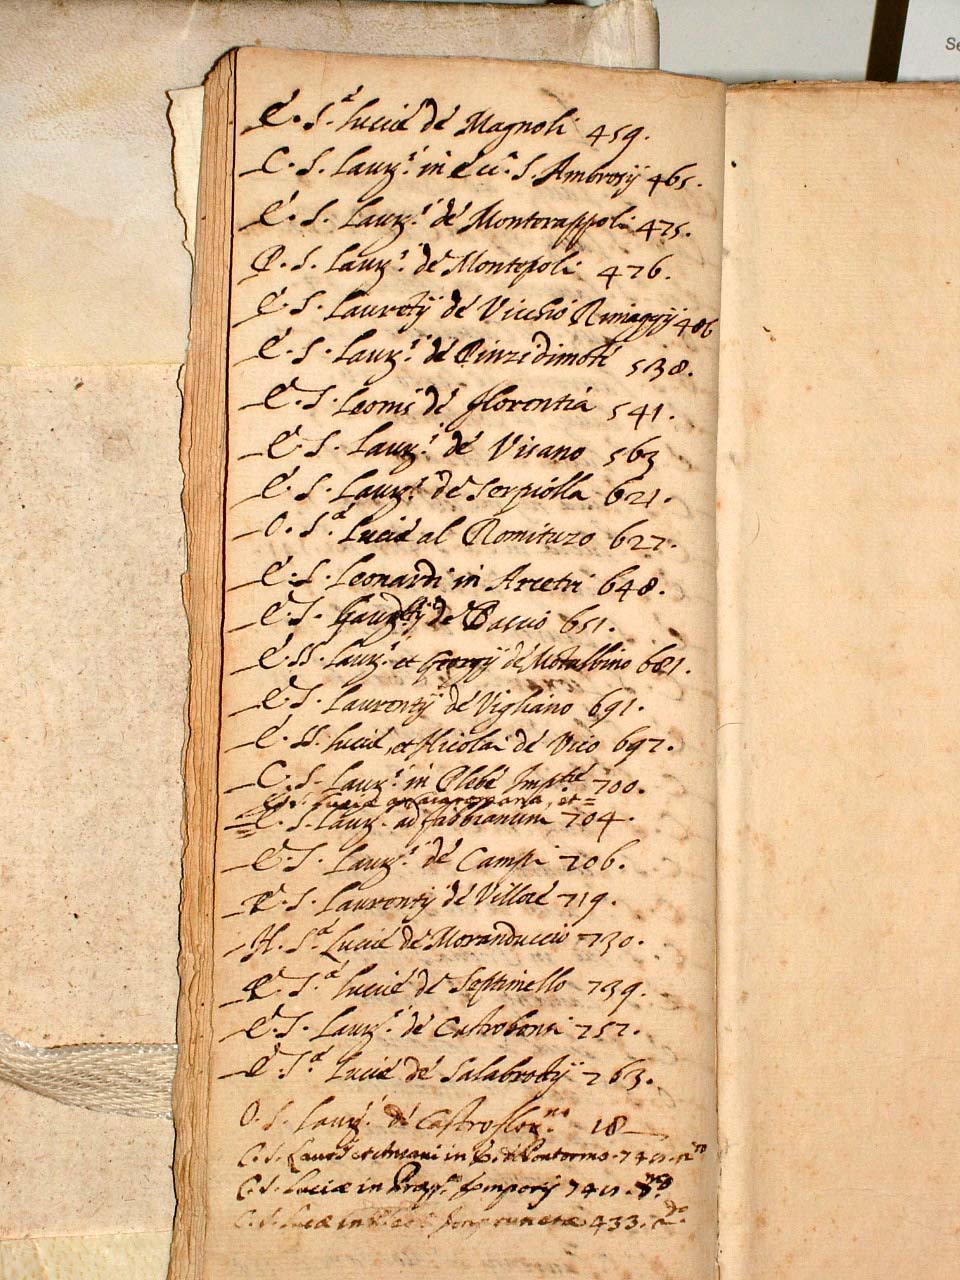 Se
E. S.ᵃ Lucie de Magnoli 459.
C. S. Laurᵗ. in Ecc.ᵃ S. Ambrosij 465.
E. S. Laurᵗ. de Monterappoli 475.
P. S. Laurᵗ. de Montopoli 476.
E. S. Laurētij de Vicchio Rimaggij 486
E. S. Laurᵗ. de Pinzidimote 538.
E. S. Leonis de Florentia 541.
E. S. Laurᵗ. de Visano 563
E. S. Laurᵗ. de Serpiolla 621.
O. S.ᵃ Lucie al Romituzo 627.
E. S. Leonardi in Arcetri 648.
E. S. de Baccio 651.
E. SS. Laurᵗ. et Georgij de Motalbino 681.
E. S. Laurentij de Vigliano 691.
E. SS. Lucie, et Nicolai de Vico 697.
C. S. Laurᵗ. in Plebe Imptᵉ 700.
S. Lucie et=
E. S. Laurᵗ. ad fabbianum 704.
E. S. Laurᵗ. de Campi 706.
E. S. Laurentij de Villore 719.
H. S.ᵃ Lucie de Moranduccio 730.
E. S.ᵃ Lucie de Septimello 739.
E. S. Laurᵗ. de Castrobonsi 757.
E. S.ᵃ Lucie de Salabrotij 763.
O. S. Laurᵗ. de Castroflorⁿᵒ. 18
C. S. Laurᵗ. in de Pontormo.
C. S. Luciæ in Emporij
C. S. Luciæ in 433. 2ᵈᵒ.